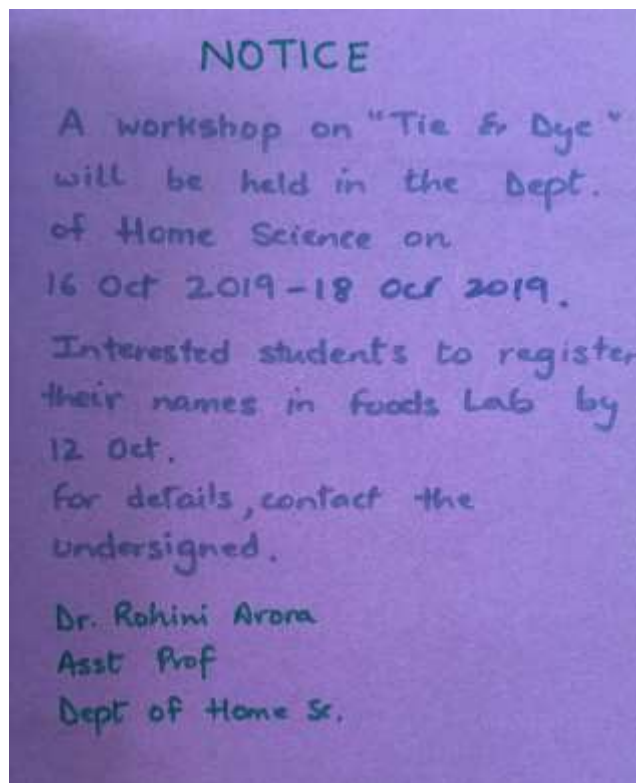 NOTICE
A workshop on "Tie & Dye"
will be held in the Dept.
of Home Science on
16 Oct 2019-18 Oct 2019.
Interested students to register
their names in foods Lab by
12 Oct.
For details, contact the
undersigned.
Dr. Rohini Arora
Asst Prof
Dept of Home Sc.